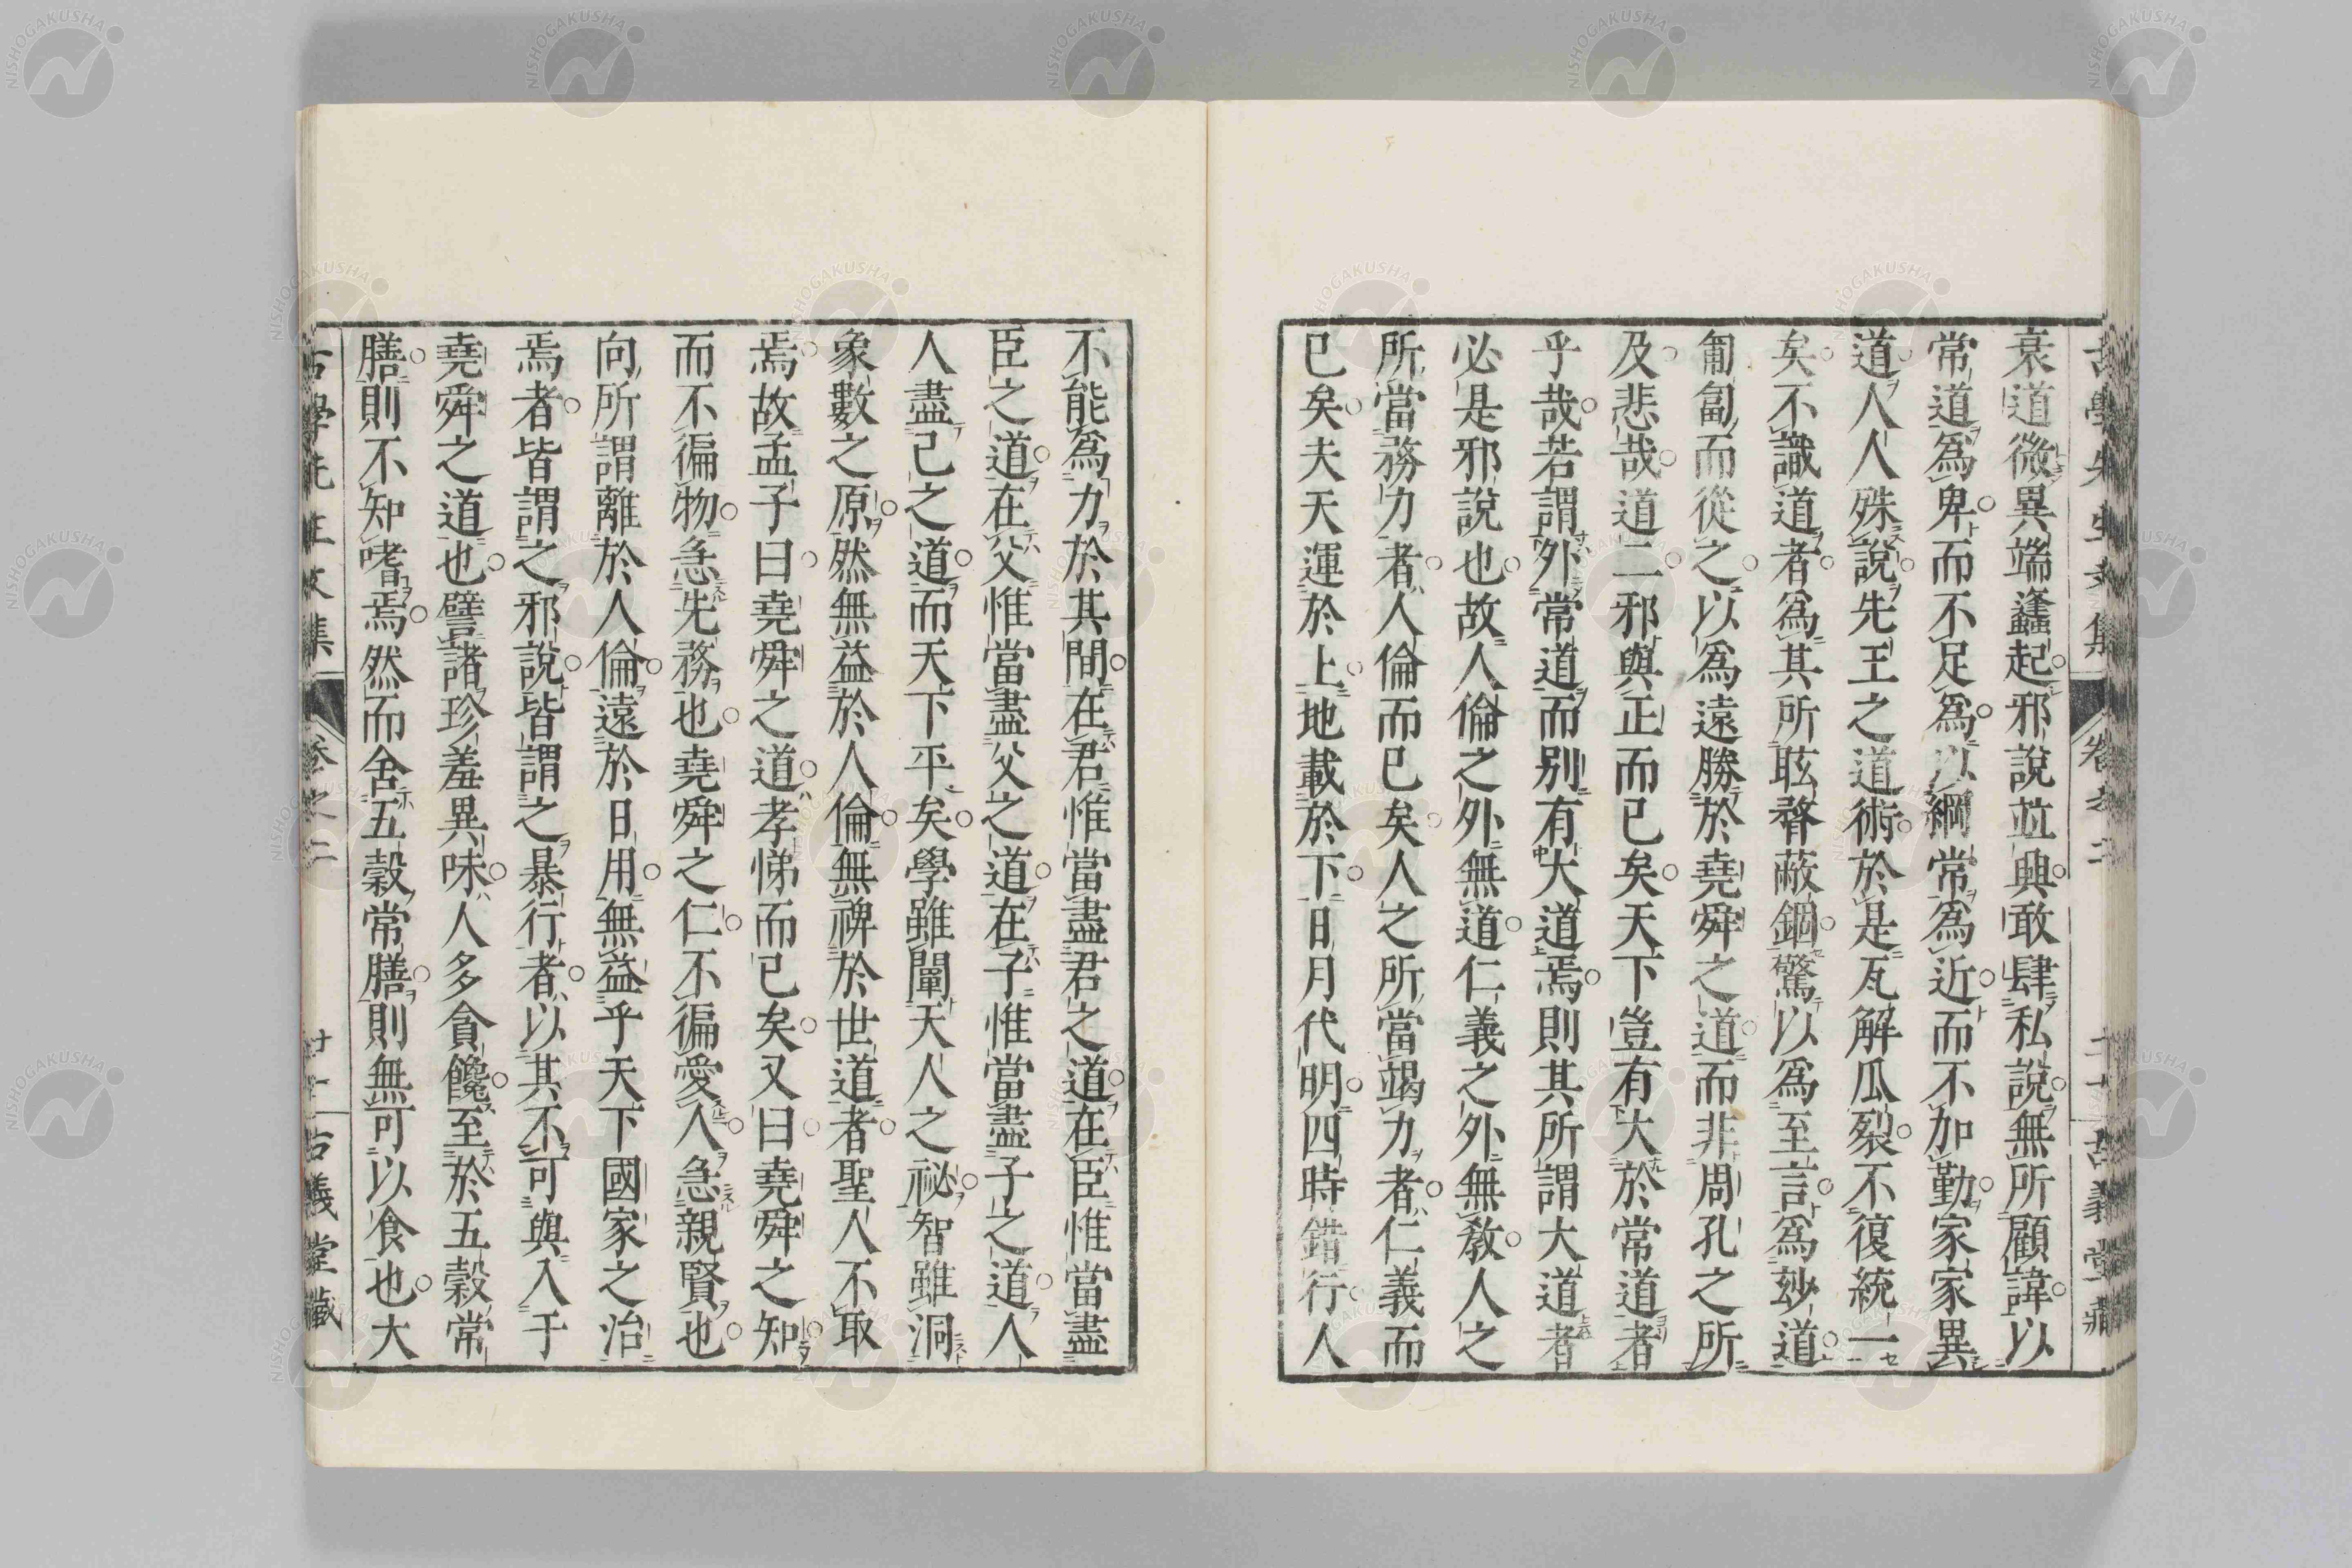 衰道微異端蠭起邪說竝興敢肆私說無所顧諱以
常道爲卑而不足爲以綱常爲近而不加勤家家異
道人人殊說先王之道術於是瓦解瓜裂不復統一
矣不識道者爲其所眩瞀蔽錮驚以爲至言爲玅道
匍匐而從之以爲遠勝於堯舜之道而非周孔之所
及悲哉道二邪與正而已矣天下豈有大於常道者
乎哉若謂外常道而別有大道焉則其所謂大道者
必是邪說也故人倫之外無道仁義之外無敎人之
所當務力者人倫而已矣人之所當竭力者仁義而
已矣夫天運於上地載於下日月代明四時錯行人
不能爲力於其間在君惟當盡君之道在臣惟當盡
臣之道在父惟當盡父之道在子惟當盡子之道人
人盡己之道而天下平矣學雖闡天人之祕智雖洞
象數之原然無益於人倫無裨於世道者聖人不取
焉故孟子曰堯舜之道孝悌而已矣又曰堯舜之知
而不徧物急先務也堯舜之仁不徧愛人急親賢也
向所謂離於人倫遠於日用無益乎天下國家之治
焉者皆謂之邪說皆謂之暴行者以其不可與入于
堯舜之道也譬諸珍羞異味人多貪饞至於五穀常
膳則不知嗜焉然而舍五穀常膳則無可以食也大
古學先生文集
卷之二
廿一
古義堂藏